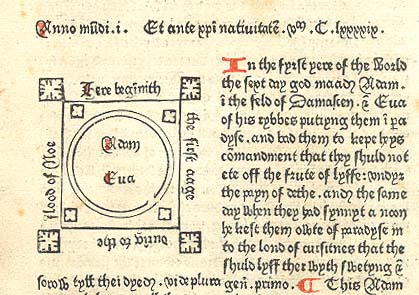 Anno mūdi .i. Et ante xp̄i natiuitatē .vᴹ. C. lxxxxix.
Here begīnith
the first aege
during to the
flood of Noe
Adam
Eua
In the fyrst yere of the World
the sext day god maad Adam.
ī the feld of Damascen. & Eua
of his rybbes putyng them ī pa
dyse. and bad them to kepe hys
cōmandment that they shuld not
ete off the frute of lyffe: vndyr
the payn of dethe. and the same
day when they had synnyt a noon
he kest them owte of paradyse in
to the lond of cursitnes that the
shuld lyff ther wyth swetyng &
sorow tyll thei dyed. vide plura gen̄. primo. ¶ This Adam